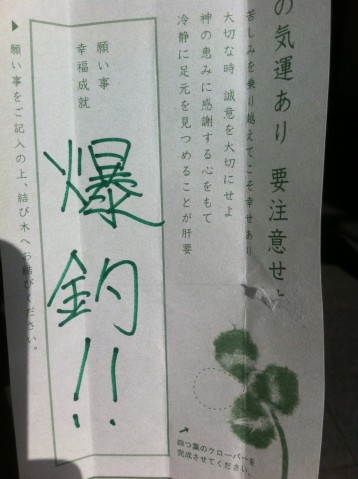 の気運あり 要注意せ
苦しみを乗り越えてこそ幸せあり
大切な時 誠意を大切にせよ
神の恵みに感謝する心をもて
冷静に足元を見つめることが肝要
願い事
幸福成就
爆釣!!
▶願い事をご記入の上、結び木へお結びください。
四つ葉のクローバーを
完成させてください。